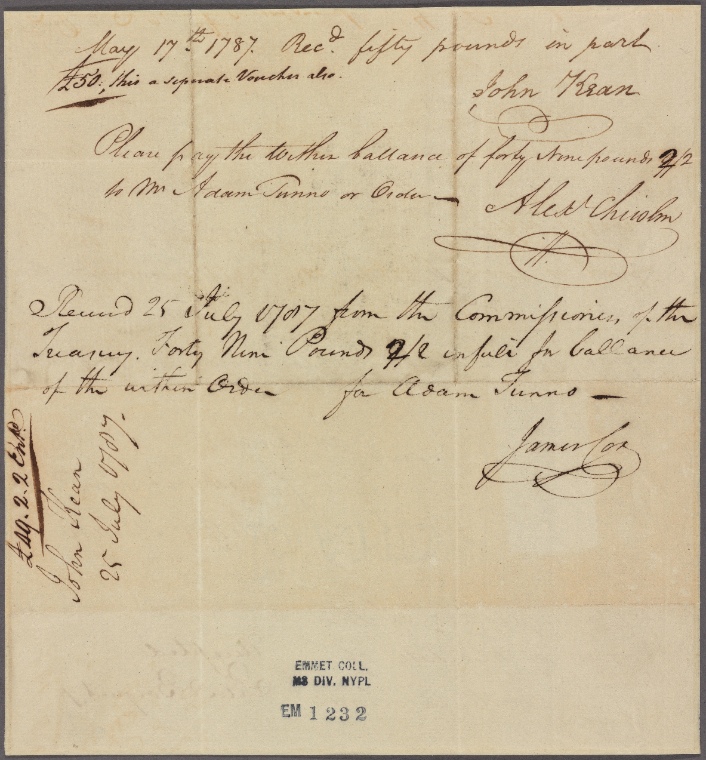 May 17th 1787. Recd. fifty pounds in part
£50., this a seperate Voucher also.
John Kean
Please pay the within ballance of forty Nine pounds 2/2
to Mr Adam Tunno or Order
Alexr Chisolm
Received 25 July 1787 from the Commissioners of the
Treasury. Forty Nine Pounds 2/2 in full for ballance
of the within Order for Adam Tunno
James Cox
£49.2.2 Entd
John Kean
25 July 1787.
EMMET COLL.
MS DIV. NYPL
EM 1232